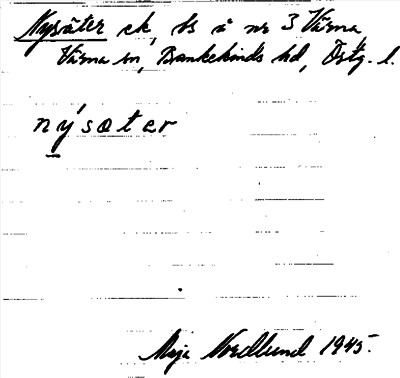 Nysäter ek, ts å nr 3 Värna
Värna sn, Bankekinds hd, Östg. l.
nýsœter
Maja Nordlund 1945.